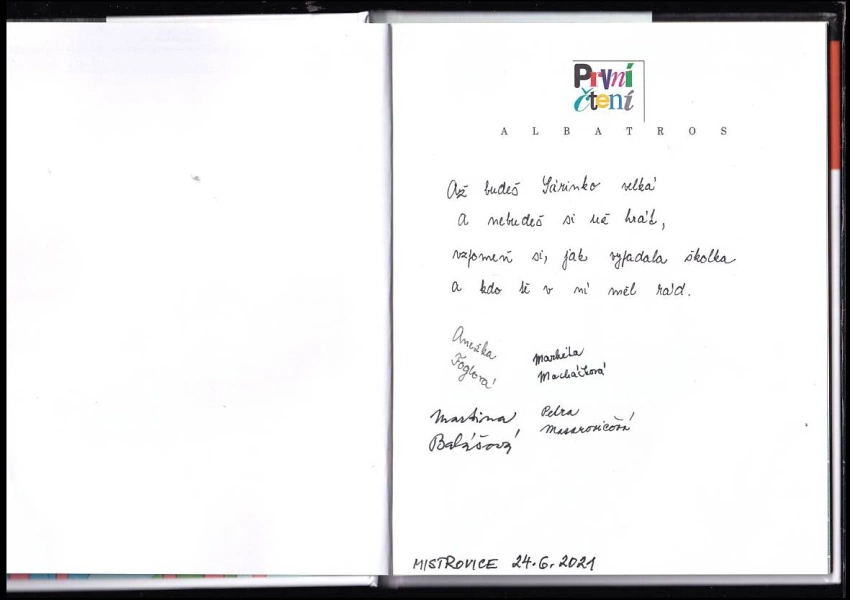 První
čtení
ALBATROS
Až budeš Sárinko velká
a nebudeš si už hrát,
vzpomeň si, jak vypadala školka
a kdo tě v ní měl rád.
Anežka
Foglová
Markéta
Macháčková
Martina
Balášová
Petra
Masarovičová
MISTROVICE 24.6.2021